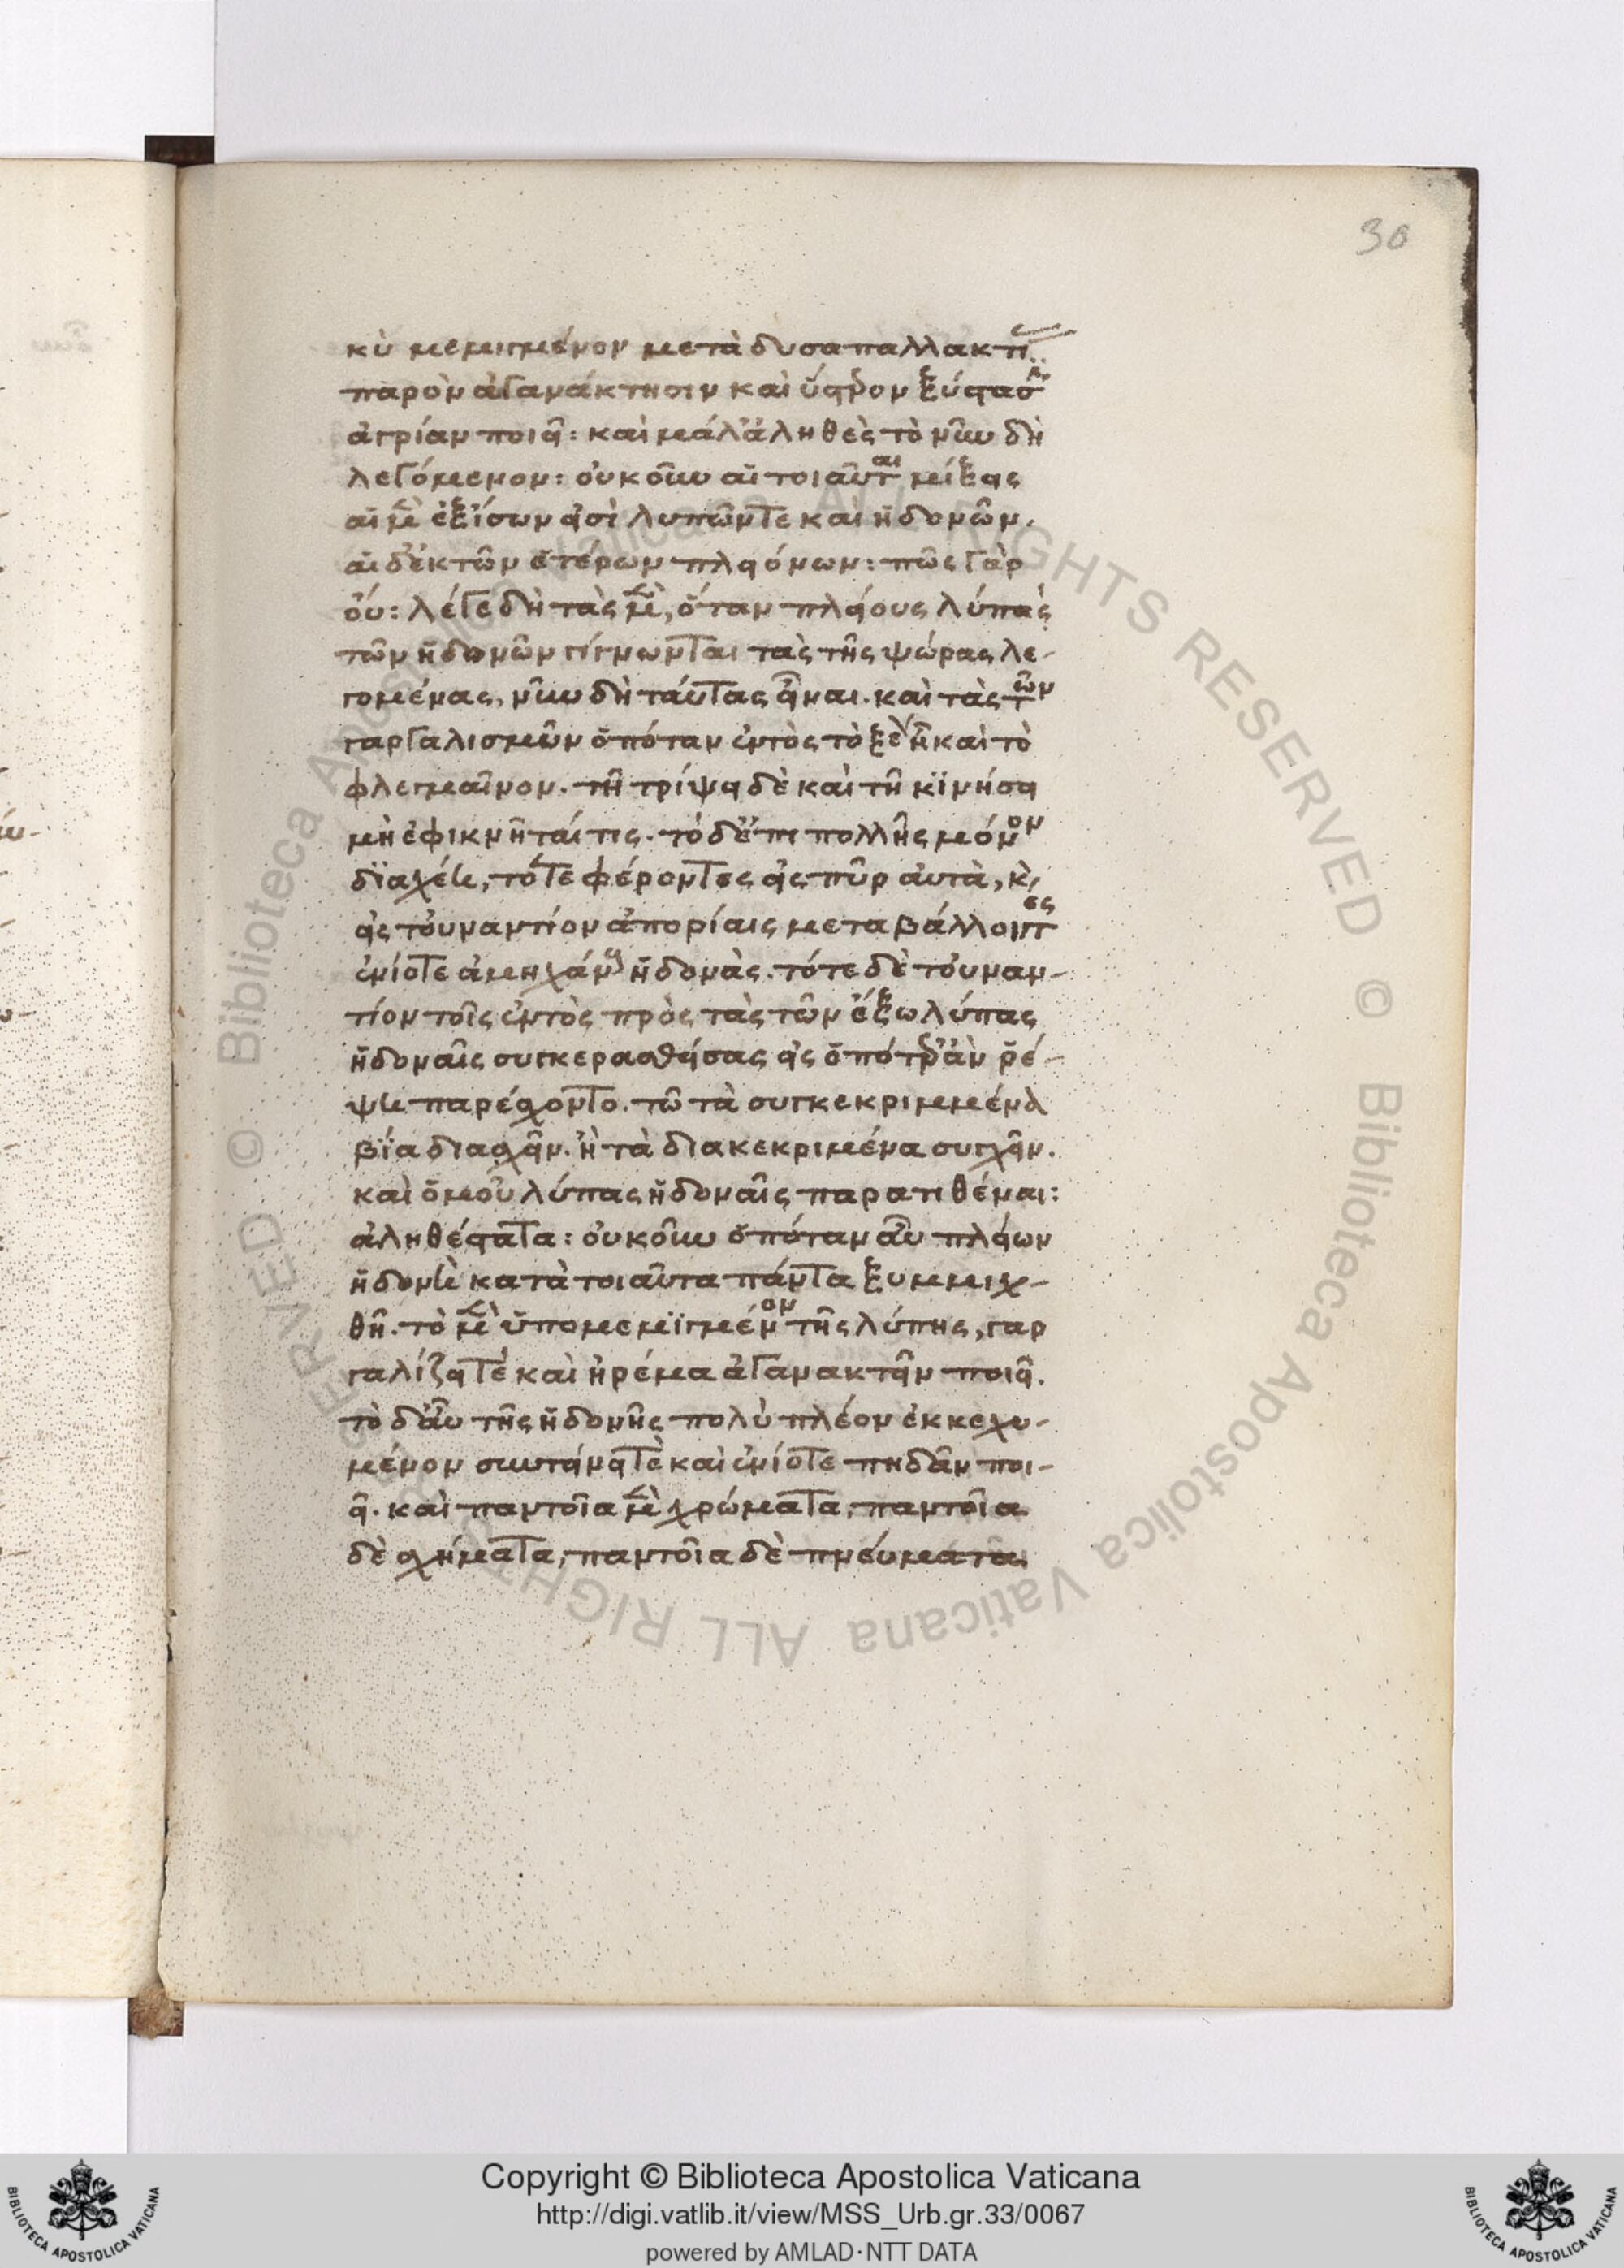 30
κρὺ μεμιγμένον μετὰ δυσαπαλλακτί..
παρὸν ἀγανάκτησιν καὶ ὕστερον ξύστασιν
ἀγρίαν ποιεῖ: καὶ μάλ' ἀληθὲς τὸ νῦν δὴ
λεγόμενον: οὐκοῦν αἱ τοιαῦται μίξεις
αἱ μὲν ἐξ ἴσων εἰσὶ λυπῶν τε καὶ ἡδονῶν.
αἱ δ' ἐκ τῶν ἑτέρων πλειόνων: πῶς γὰρ
οὔ: λέγε δὴ τὰς μὲν, ὅταν πλείους λύπας
τῶν ἡδονῶν γίγνωνται τὰς τῆς ψώρας λε-
γομένας, νῦν δὴ ταύτας εἶναι. καὶ τὰς τῶν
γαργαλισμῶν ὁπόταν ἐντὸς τὸ ζέον ᾖ καὶ τὸ
φλεγμαῖνον. τῇ τρίψει δὲ καὶ τῇ κϊνήσει
μὴ ἐφικνῆταί τις. τὸ δ' ἐπι πολλῆς μόνον
δϊαχέῃ, τότε φέροντες εἰς πῦρ αὐτὰ, κ,
εἰς τοὐναντίον ἀπορίαις μεταβάλλοντες
ἐνίοτε ἀμηχάνους ἡδονὰς. τότε δὲ τοὐναν-
τίον τοῖς ἐντὸς πρὸς τὰς τῶν ἔξω λύπας
ἡδοναῖς συγκερασθείσας εἰς ὁπότερ' ἂν ῥέ-
ψῃ παρέσχοντο. τῷ τὰ συγκεκριμμένα
βίᾳ διασχεῖν. ἢ τὰ διακεκριμένα συγχεῖν.
καὶ ὁμοῦ λύπας ἡδοναῖς παρατιθέναι:
ἀληθέστατα: οὐκοῦν ὁπόταν αὖ πλείων
ἡδονὴ κατὰ τοιαῦτα πάντα ξυμμιχ-
θῇ. τὸ μὲν ὑπομεμϊγμένον τῆς λύπης, γαρ
γαλίζει τέ καὶ ἠρέμα ἀγανακτεῖν ποιεῖ.
τὸ δ' αὖ τῆς ἡδονῆς πολὺ πλέον ἐκκεχυ-
μένον συντείνει τὲ καὶ ἐνίοτε πηδᾶν ποι-
εῖ. καὶ παντοῖα μὲν χρώματα, παντοῖα
δὲ σχήματα, παντοῖα δὲ πνεύματα
Copyright © Biblioteca Apostolica Vaticana
http://digi.vatlib.it/view/MSS_Urb.gr.33/0067
powered by AMLAD·NTT DATA
BIBLIOTECA APOSTOLICA VATICANA
BIBLIOTECA APOSTOLICA VATICANA
© Biblioteca Apostolica Vaticana ALL RIGHTS RESERVED © Biblioteca Apostolica Vaticana ALL RIGHTS RESERVED